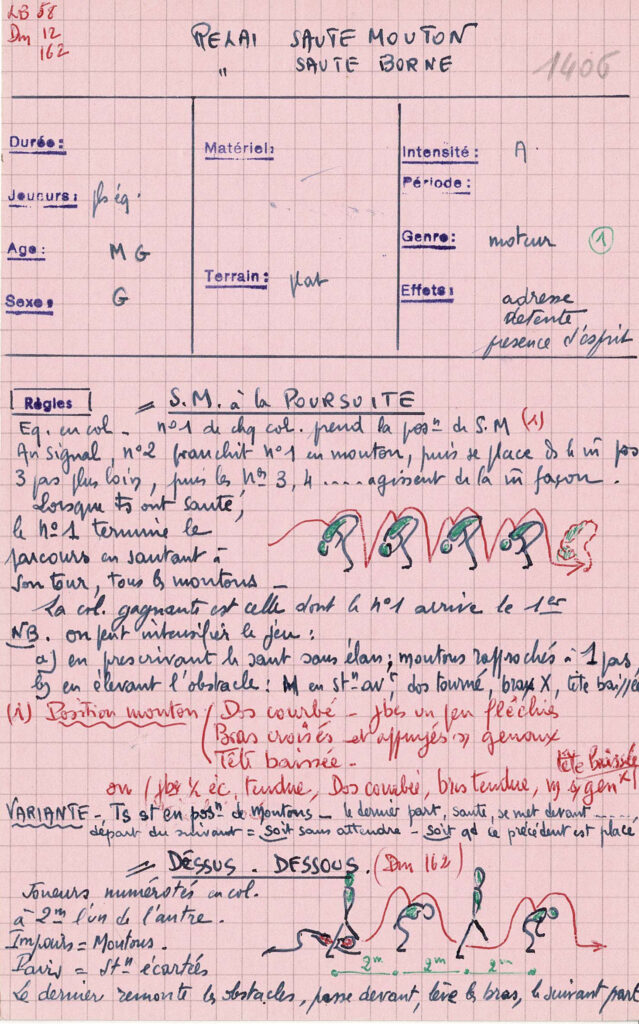 LB 58
Dm 12
162
RELAI SAUTE MOUTON
" SAUTE BORNE
1406
Durée:
Matériel:
Intensité: A
Joueurs: pls éq.
Période:
Age: M G
Genre: moteur 1
Terrain: plat
Sexe: G
Effets: adresse
détente
présence d'esprit
Règles
= S.M. à la POURSUITE
Eq. en col - n°1 de chq col. prend la posn de S.M (1)
Au signal, n°2 franchit n°1 en mouton, puis se place ds le m̄ pos
3 pas plus loin, puis les nos 3, 4 .... agissent de la m̄ façon.
Lorsque Ts ont sauté,
le n°1 termine le
parcours en sautant à
son tour, tous les moutons -
La col. gagnante est celle dont le n°1 arrive le 1er
NB. on peut intensifier le jeu :
a) en prescrivant le saut sans élan; moutons rapprochés à 1 pas,
b) en élevant l'obstacle : M en stn avt, dos tourné, bras X, tête baissée
(1) Position mouton ( Dos courbé - jbes un peu fléchies
Bras croisés et appuyés sr genoux
Tête baissée -
ou ( jbes éc. tendue, Dos courbé, bras tendue, m s/ genx)
tête baissée
VARIANTE -, Ts st en posn de moutons - le dernier part, saute, se met devant ......
départ du suivant = soit sans attendre - soit qd le précédent est placé
= DESSUS. DESSOUS. (Dm 162)
Joueurs numérotés en col.
à 2m l'un de l'autre.
Impairs = Moutons.
Pairs = Stn écartés
2m 2m 2m
Le dernier remonte les obstacles, passe devant, lève les bras, le suivant part